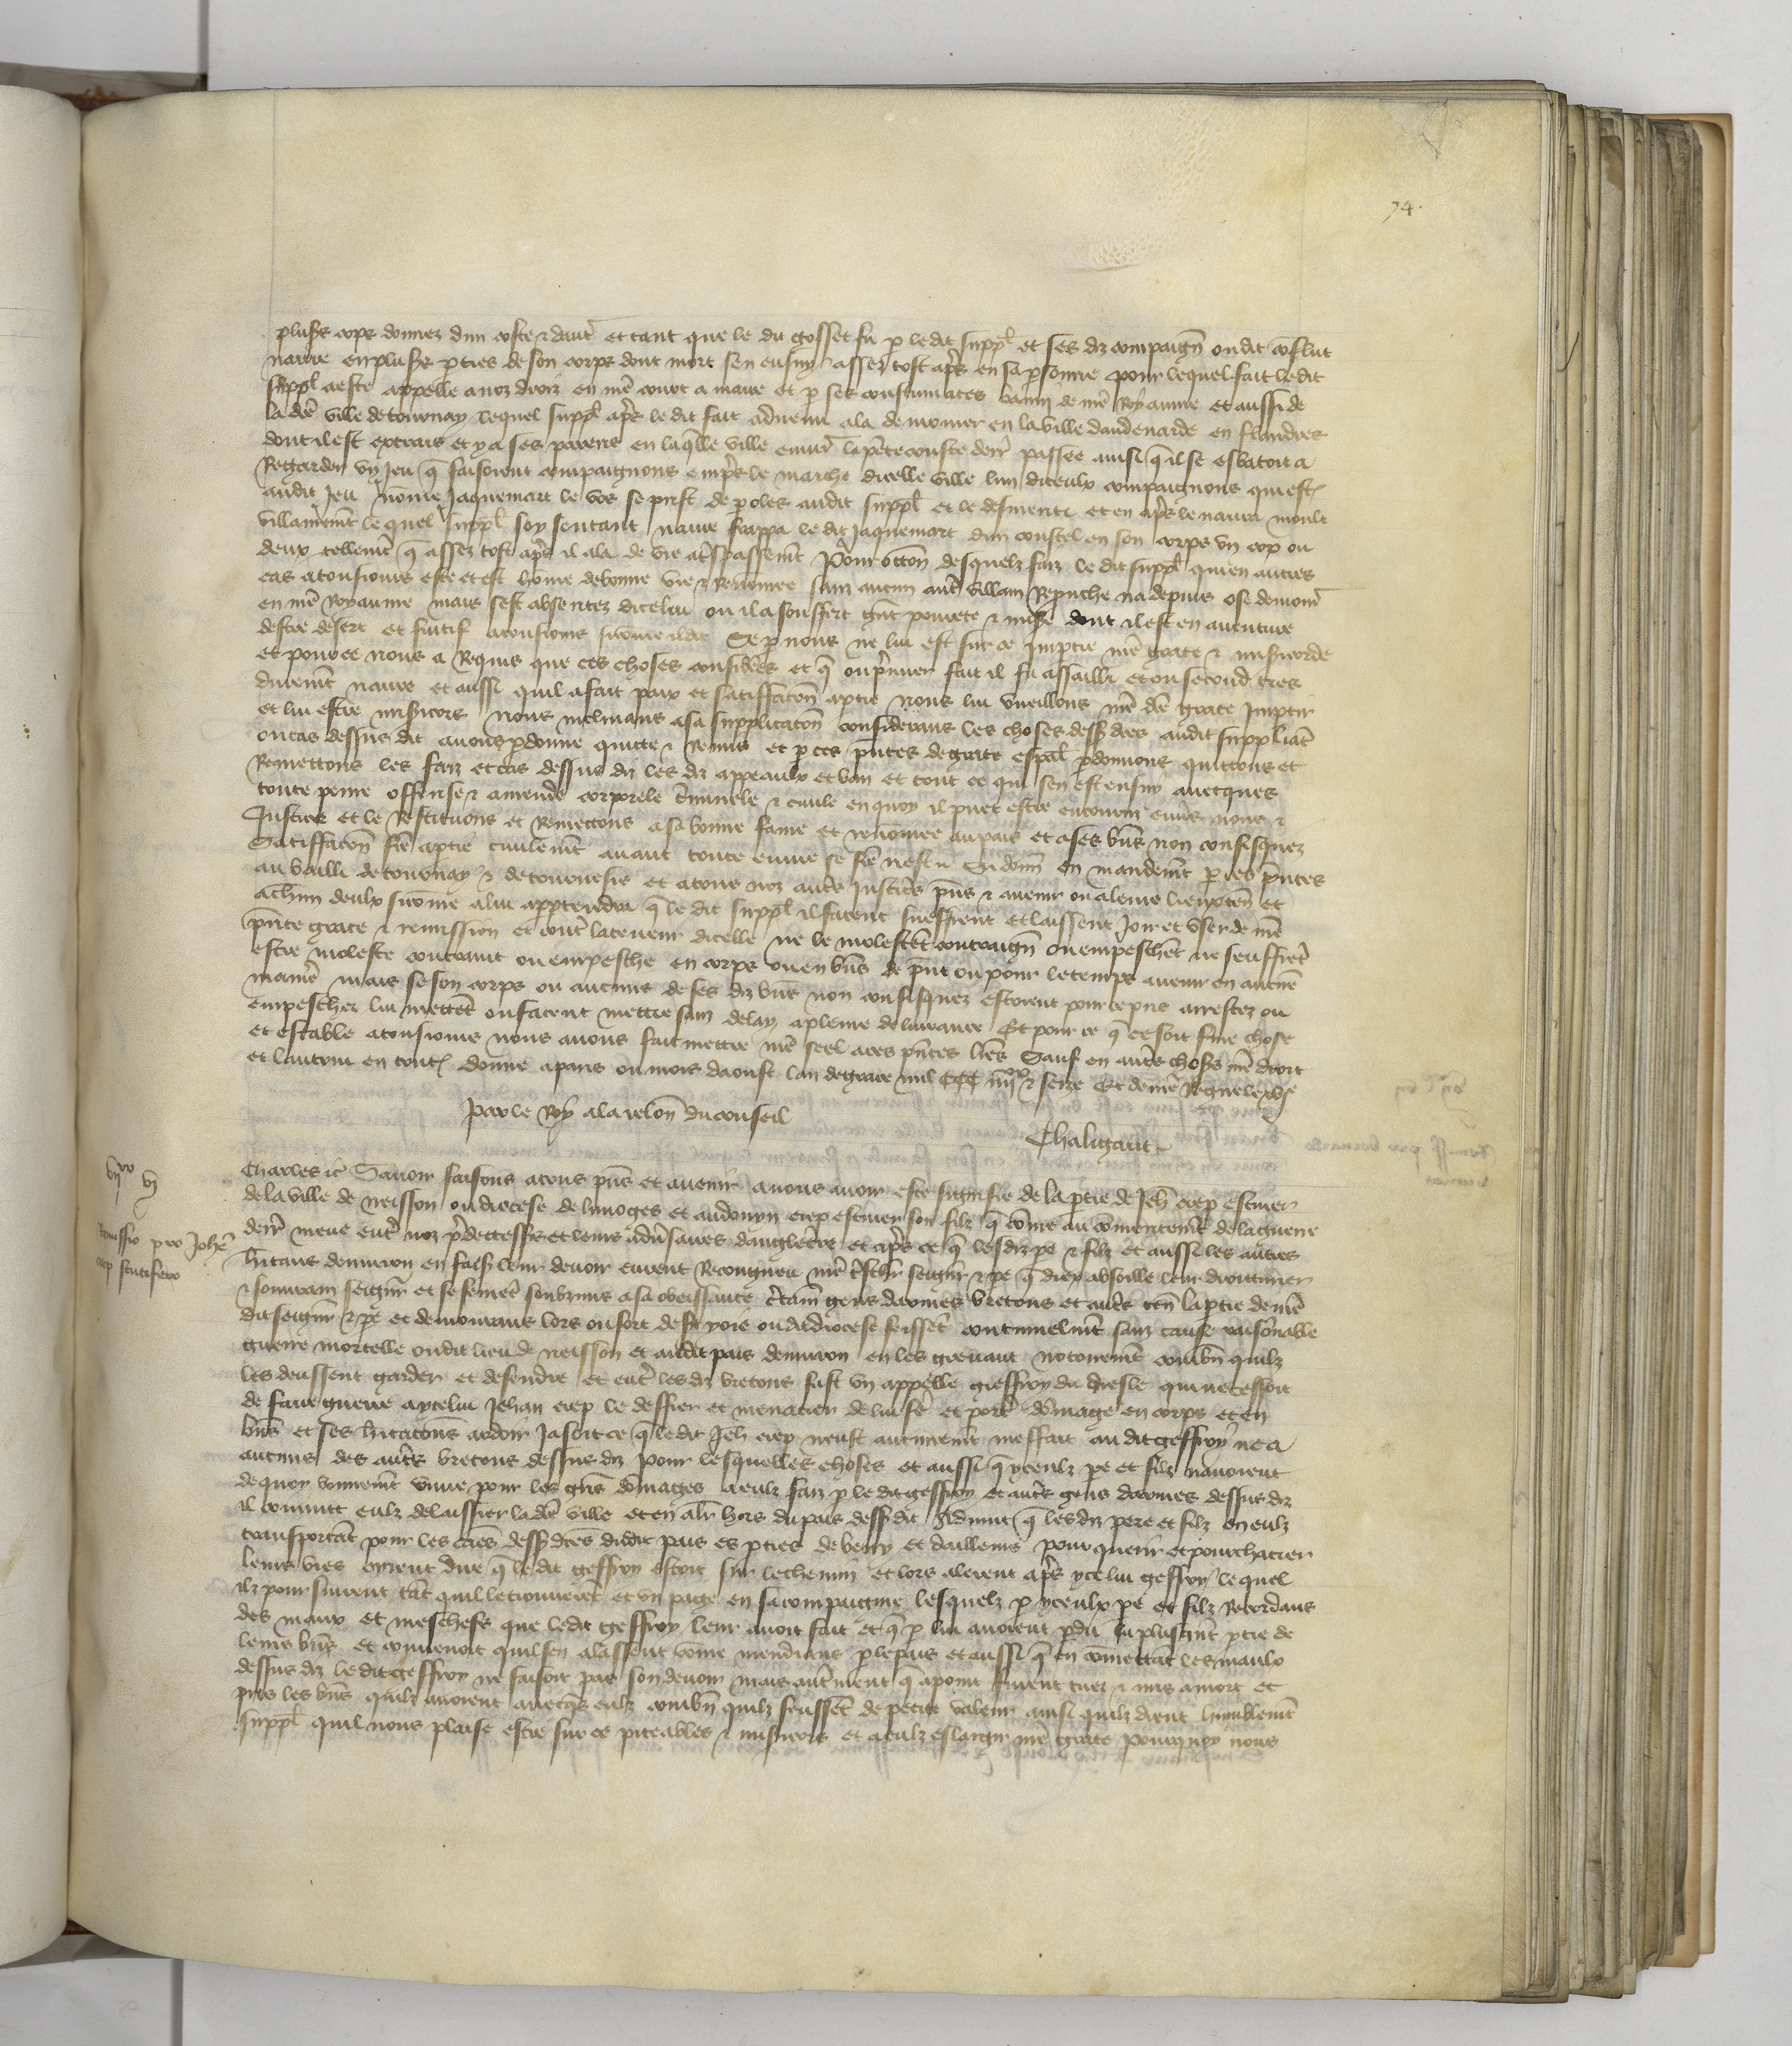 74.
plus᷒s cops donnez dun coste & daut᷒ et tant que le dit gosset fu p ledit suppl᷒ et ses diz compaign̄ ou dit conflict
navre en plus᷒s pties de son corps dont mort sen ensuy assez tost ap̄s en sa psonne pour lequel fait ledit
suppl᷒ a este appelle a noz droiz en nr̄e court a maire et p ses coustumaces banny de nr̄e Royaume et aussi de
la dc̄e ville de tournay lequel suppl᷒ ap̄s le dit fait advenu ala demourer en la ville daudenarde en flandres
dont il est extrais et y a ses parens en laq̄lle ville envir̄ la penthecouste derr̄ passee ainsi q̄ il se esbatoit a
Regarder un Jeu q̄ faisoient compaignons empres le marchie dicelle ville lun diceulx compaignons qui est
audit Jeu nōme Jaquemart le vos se prist de poles audit suppl᷒ et le desmenti et en ap̄s le navra moult
villainemt̄ le quel suppl᷒ soy sentant navre frappa le dit Jaquemart dun coustel en son corps un cop ou
deux tellemt̄ q̄ assez tost ap̄s il ala de vie a t̄spassemt̄ Pour occōn desquelz faiz le dit suppl᷒ qui en autres
cas a tousiours este et est hōme de bonne vie & Renōmee sanz aucun aut᷒ villain Reprouche na depuis ose demour̄
en nr̄e Royaume mais sest absentez dicelui ou il a souffert gr̄nt povrete & mis᷒e dont il est en aventure
destre desert et fuitif a tousiours sicōme il dit Se p nous ne lui est sur ce Imptie nr̄e grace & mis᷒icorde
et pour ce nous a Requis que ces choses considerees et q̄ ou p̄mier fait il fu assailli et ou second tres
duremt̄ navre et aussi quil a fait paix et satisfaccōn a ptie nous lui vueillons nr̄e dc̄e grace Impartir
et lui estre mis᷒icors Nous inclinans a sa supplicacōn considerans les choses dess᷒ dc̄es audit suppliāt
ou cas dessus dit avons pdonne quitte & Remis et p ces p̄ntes de grace esp̄al pdonnons quittons et
Remettons les faiz et cas dessus diz les diz appeaulx et ban et tout ce qui sen est ensuy avecques
toute peine offense & amende corporele c̄minele & civile en quoy il puet estre encouru envers nous &
Justice et le Restituons et Remettons a sa bonne fame et renōmee au pais et a ses bn̄s non confisquez
Satisfaccōn fc̄e a ptie civilemt̄ avant toute euvre se fc̄e nest Si donn̄ en mandemt̄ p ces p̄ntes
au bailli de tournay & de tournesis et a tous noz aut᷒s Justic̄s p̄ns & avenir ou a leurs lieuxten̄ et
a chūn deulx sicōme a lui apptendra q̄ le dit suppl᷒ ilz facent sueffrent et laissent Joir et user de nr̄e
p̄nte grace & remission et cont᷒ la teneur dicelle ne le molestent contraign̄ ou empeschēt ne seuffrēt
estre moleste contraint ou empesche en corps ou en bn̄s de p̄nt ou pour le temps avenir en aucune
manier̄ mais se son corps ou aucuns de ses diz bn̄s non confisquez estoient pour ce pris arrestez ou
empeschez lui mettēt ou facent mettre sanz delay a pleine delivrance Et pour ce q̄ ce soit ferme chose
et estable a tousiours nous avons fait mettre nr̄e seel a ces p̄ntes lr̄es Sauf en aut᷒s choses nr̄e droit
et lautrui en tout᷒ donne a paris ou mois daoust lan de grace mil CCC iiijxx & seize Et de nr̄e Regne le xvje
Par le Roy a la relōn du conseil
Chaligaut
vijxx vj
Remissio pro Joh̄e
crep scutifero
Charles &c̄ Savoir faisons a tous p̄ns et avenir a nous avoir este signifie de la ptie de Jeh̄ crep escuier
de la ville de neisson ou diocese de limoges et audouyn crep escuier son filz q̄ cōme au cōmencemt̄ de la guerre
derr̄ meue ent᷒ noz p̄decessrs et leurs adv̄saires dangleterre et ap̄s ce q̄ lesdiz pe᷒ & filz et aussi les autres
h̄itans denviron en fais᷒ leur devoir eurent Recongneu nr̄e t̄schr̄ seignr̄ & pe᷒ q̄ diex absoille leur droitturier
& souverain seignr̄ et se feurēt soubzmis a sa obeissance c̄tain̄ gens darmes bretons et aut᷒s ten̄ la ptie de nr̄e
dit seignr̄ & pe᷒ et demourans lors ou fort de st yrie ou dit diocese feissēt continuelmt̄ sanz cause raisōnable
guerre mortelle oudit lieu de neisson et audit pais denviron en les grevant notoiremt̄ combn̄ quilz
les deussent garder et defendre et ent᷒ les diz bretons fust un appelle gieffroy du Quesle qui ne cessoit
de faire guerre a ycelui Jehan crep le deffier et menacier de lui fē et port᷒ dōmage en corps et en
bn̄s et ses h̄itacōns ardoir Ja soit ce q̄ le dit Jeh̄ crep neust aucunemt̄ meffait au dit geffroy ne a
aucuns des aut᷒s bretons dessus diz pour lesquelles choses et aussi q̄ yceulz pe᷒ et filz navoient
de quoy bonnemt̄ vivre pour les gr̄ns dōmages a eulz faiz p le dit geffroy et aut᷒s gens darmes dessus diz
il convint eulz delaissier la dc̄e ville et en aler hors du pais dess᷒ dit Advint q̄ les diz pere et filz en eulz
transportāt pour les causes dess᷒ dc̄es dudit pais es pties de berry et dailleurs pour querir et pourchacier
leurs vies oyrent dire q̄ le dit geffroy estoit sur le chemin et lors alerent ap̄s ycelui geffroy lequel
ilz poursuirent tāt quil le trouverēt et un page en sa compaignie lesquelz p yceulx pe᷒ et filz Recordans
des maux et meschefs que ledit geffroy leur avoit fait et q̄ p lui avoient pdu la plus gr̄nt ptie de
leurs bn̄s et convenoit quil sen alassent cōme mendians p le pais et aussi q̄ en cōmettāt les maulx
dessus diz le dit geffroy ne faisoit pas son devoir mais aut᷒ment q̄ a point furent tuez & mis a mort et
pris les bn̄s quilz avoient avecq̄s eulz combn̄ quilz feussēt de petite valeur ainsi quilz dient humblemt̄
suppl᷒ quil nous plaise estre sur ce piteables & mis᷒icors et a eulz eslargir nr̄e grace Pourquoy nous